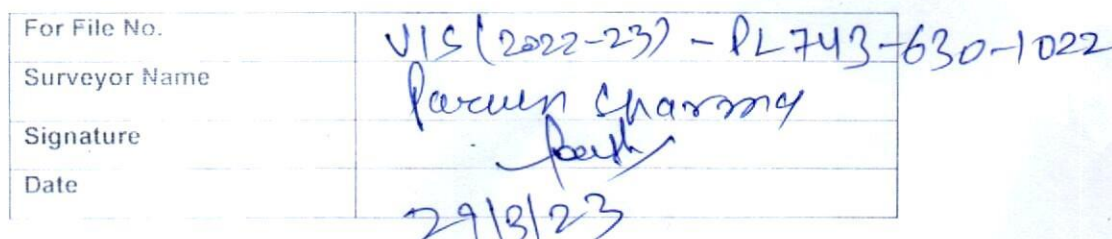 For File No. VIS(2022-23) - PL743-630-1022
Surveyor Name Parveen Sharma
Signature
Date 29/3/23